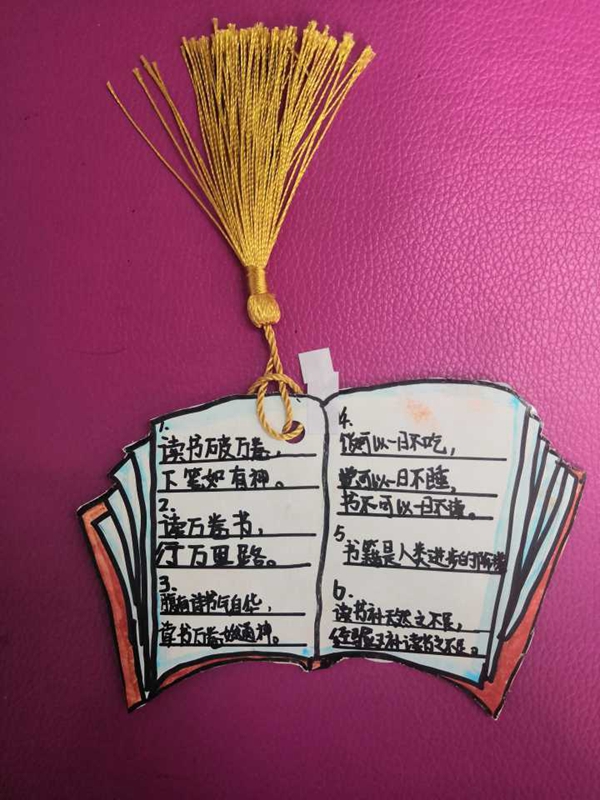 1.
读书破万卷，
下笔如有神。
2.
读万卷书，
行万里路。
3.
腹有诗书气自华，
读书万卷始通神。
4.
饭可以一日不吃，
觉可以一日不睡，
书不可以一日不读。
5.
书籍是人类进步的阶梯
6.
读书补天然之不足，
经验又补读书之不足。